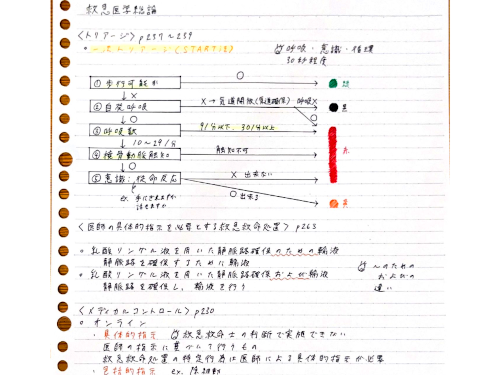 救急医学総論
〈トリアージ〉p237〜239
○ 一次トリアージ(START法) 呼吸・意識・循環
30秒程度
① 歩行可能か ○ 緑
↓×
② 自発呼吸 × → 気道開放(気道確保) 呼吸× 黒
↓○ ○
③ 呼吸数 9/分以下、30/分以上
↓ 10〜29/分 赤
④ 橈骨動脈触知 触知不可
↓○
⑤ 意識:従命反応 × 出来ない
ex. 手にぎれますか ○ 出来る 黄
〈医師の具体的指示を必要とする救急救命処置〉p263
○ 乳酸リンゲル液を用いた静脈路確保のための輸液
静脈路を確保するために輸液 〜のための
○ 乳酸リンゲル液を用いた静脈路確保および輸液 および の
静脈路を確保し、輸液を行う 違い
〈メディカルコントロール〉p230
○ オンライン
・具体的指示 救急救命士の判断で実施できない
医師の指示に基づいて行うもの
救急救命処置の特定行為は医師による具体的指示が必要
・包括的指示 ex. 除細動